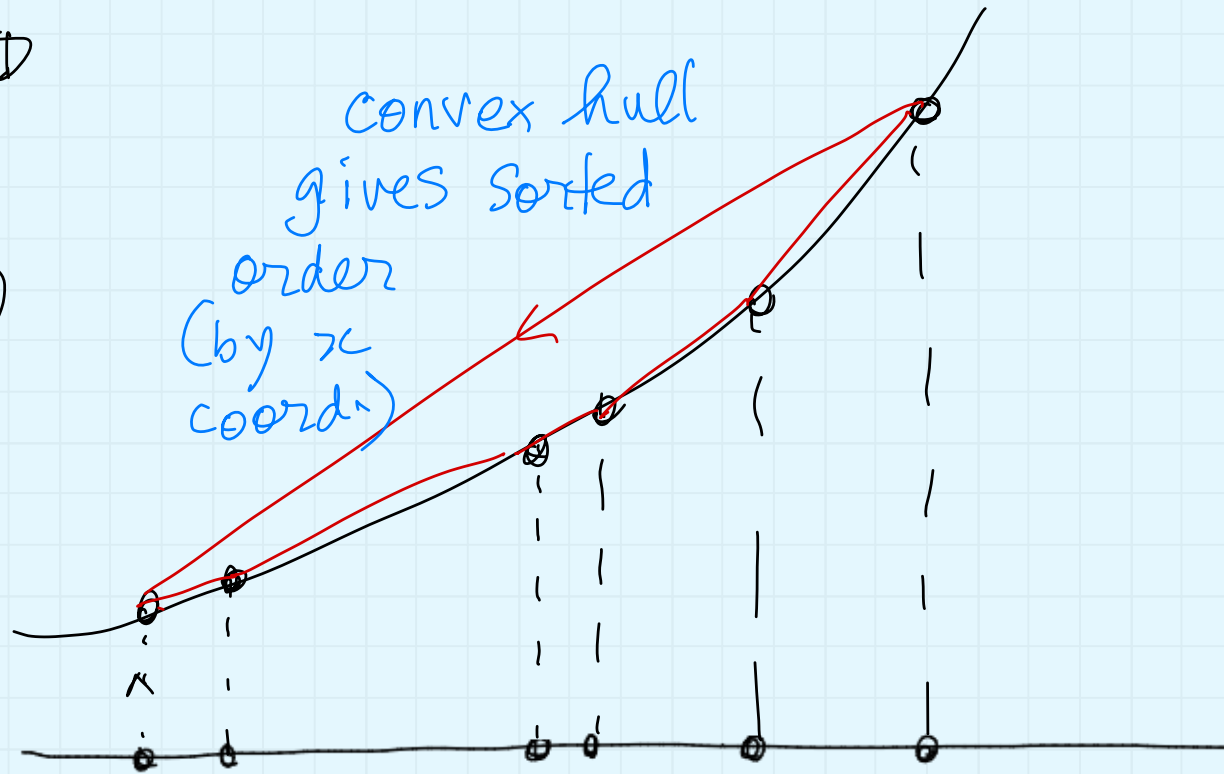 convex hull
gives sorted
order
(by x
coord.)